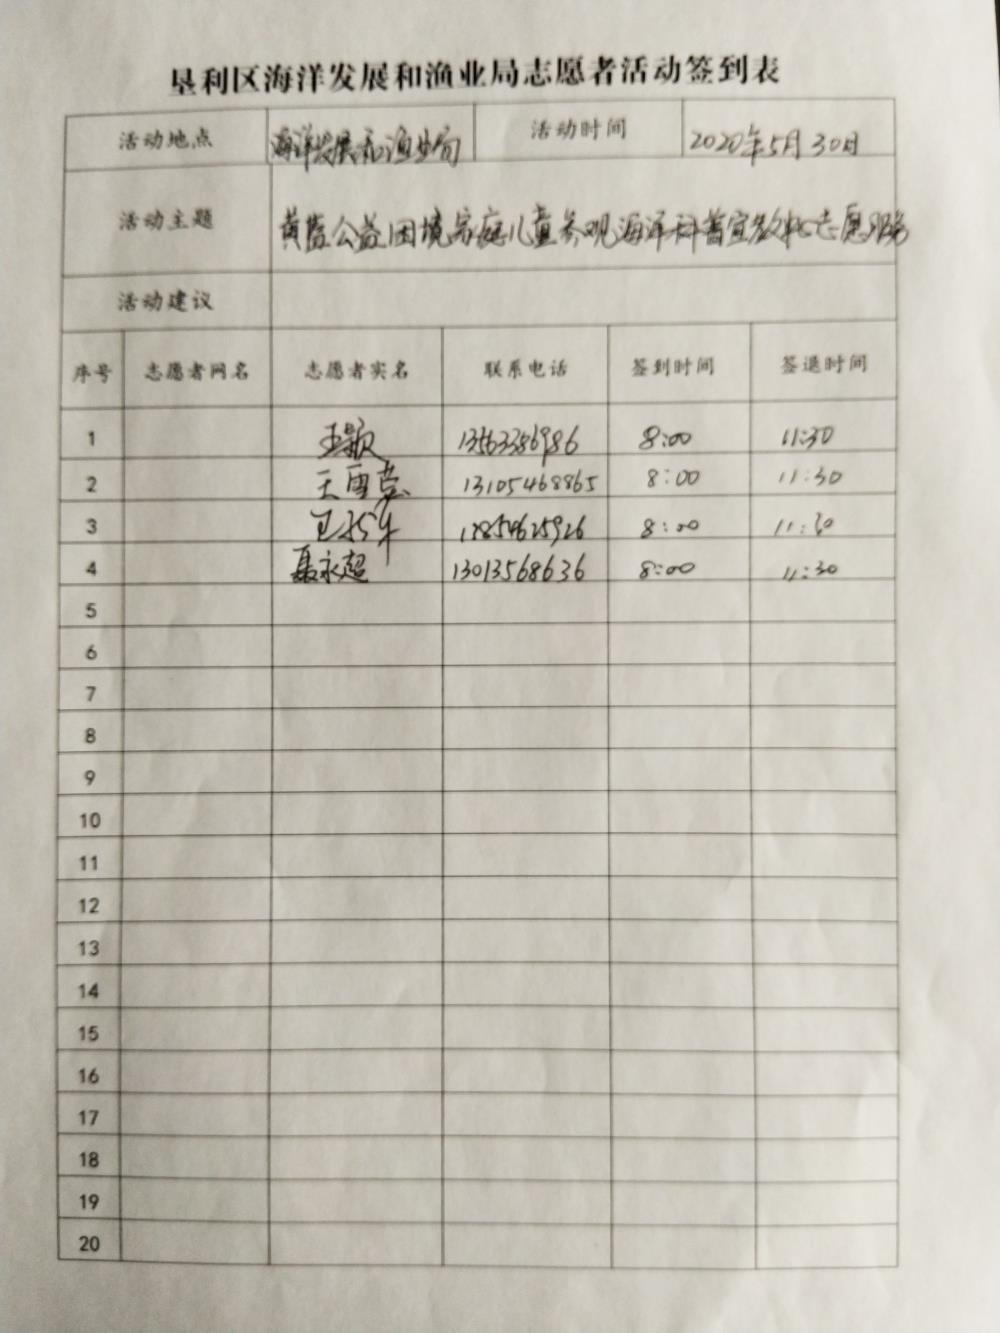 垦利区海洋发展和渔业局志愿者活动签到表
活动地点 海洋发展和渔业局 活动时间 2020年5月30日
活动主题 黄蓝公益困境家庭儿童参观海洋科普宣教中心志愿服务
活动建议
序号 志愿者网名 志愿者实名 联系电话 签到时间 签退时间
1 王颖 13563386986 8:00 11:30
2 王雪莹 13105468865 8:00 11:30
3 8:00 11:30
4 聂永超 13013568636 8:00 11:30
5
6
7
8
9
10
11
12
13
14
15
16
17
18
19
20